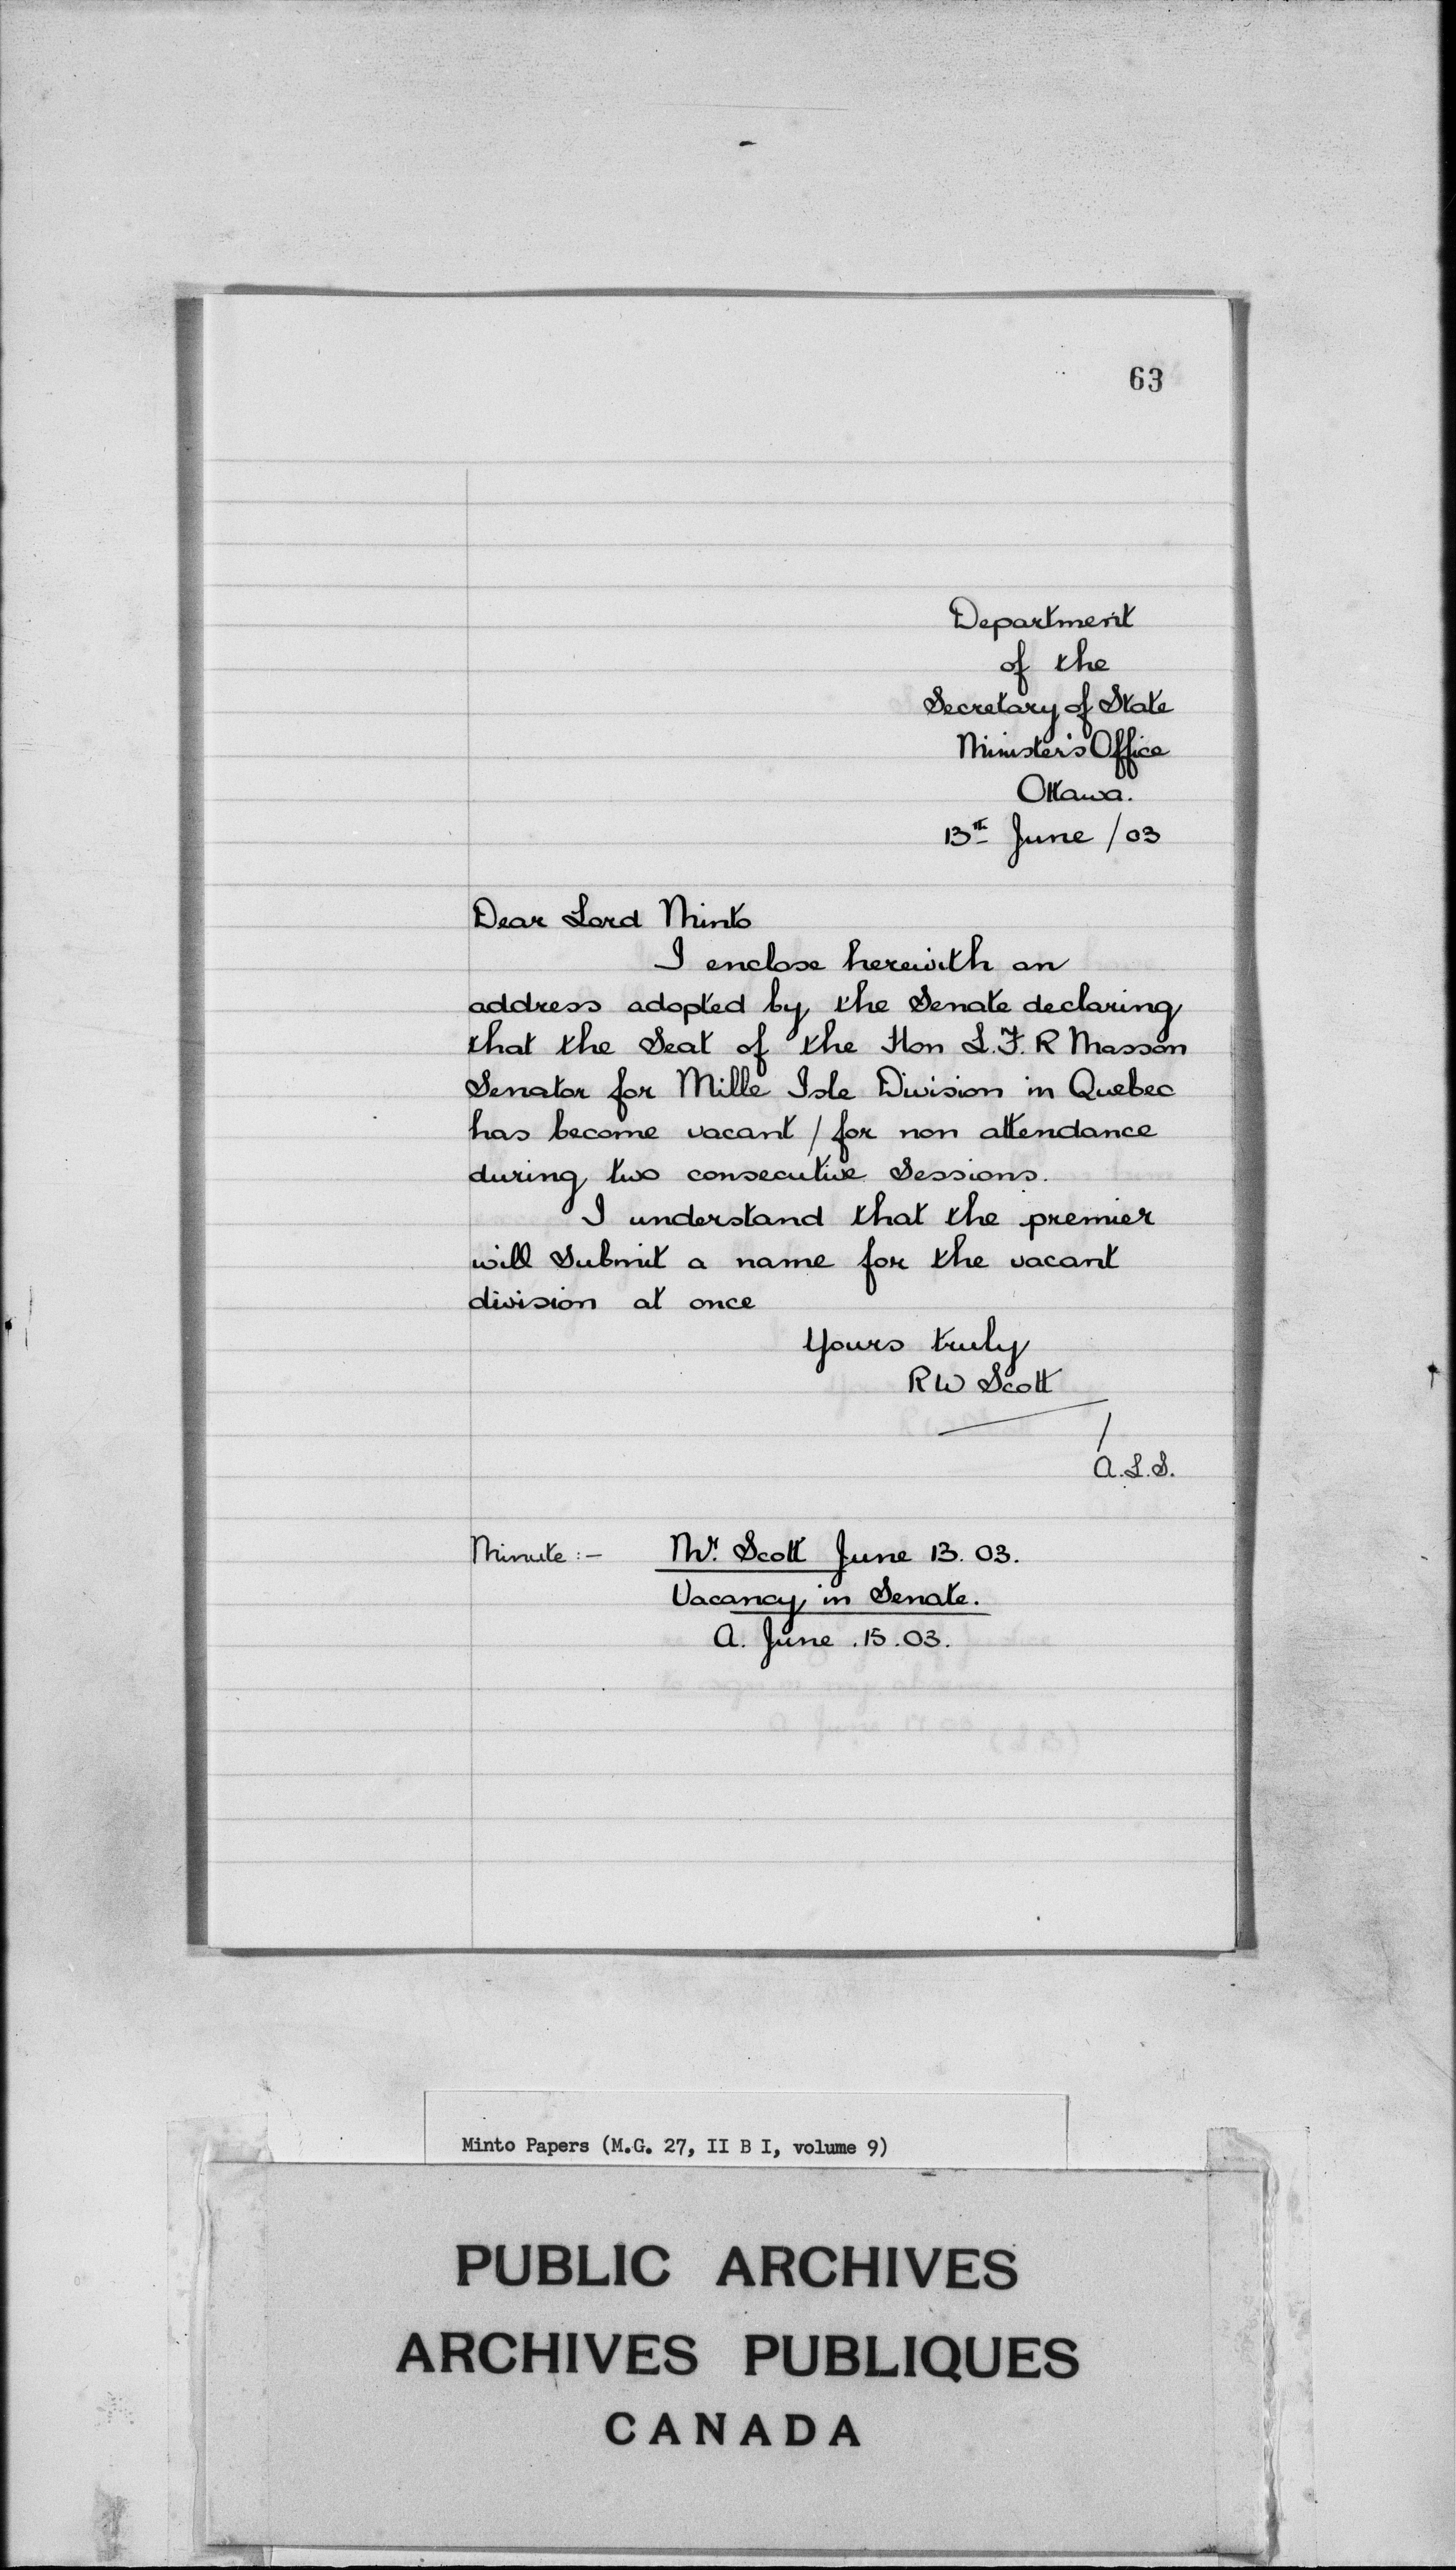 63
Department
of the
Secretary of State
Minister's Office
Ottawa.
13th June /03
Dear Lord Minto
I enclose herewith an
address adopted by the Senate declaring
that the Seat of the Hon L.F.R Masson
Senator for Mille Isle Division in Quebec
has become vacant / for non attendance
during two consecutive Sessions.
I understand that the premier
will Submit a name for the vacant
division at once
Yours truly
R W Scott
/
A.L.S.
Minute :- Mr. Scott June 13. 03.
Vacancy in Senate.
A. June .15.03.
Minto Papers (M.G. 27, II B I, volume 9)
PUBLIC ARCHIVES
ARCHIVES PUBLIQUES
CANADA